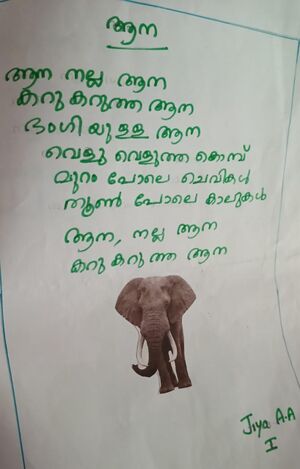 ആന
ആന നല്ല ആന
കറുകറുത്ത ആന
ഭംഗിയുള്ള ആന
വെളു വെളുത്ത കൊമ്പ്
മുറം പോലെ ചെവികൾ
തൂൺ പോലെ കാലുകൾ
ആന, നല്ല ആന
കറുകറുത്ത ആന
Jiya A.A
I